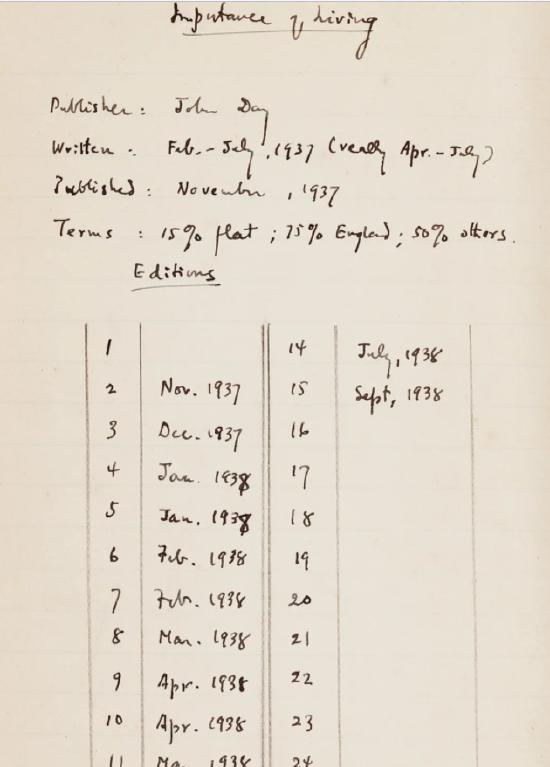 Importance of Living
Publisher: John Day
Written: Feb.-July, 1937 (really Apr.-July)
Published: November, 1937
Terms: 15% flat; 75% England; 50% others.
Editions
1 14 July, 1938
2 Nov. 1937 15 Sept, 1938
3 Dec. 1937 16
4 Jan. 1938 17
5 Jan. 1938 18
6 Feb. 1938 19
7 Feb. 1938 20
8 Mar. 1938 21
9 Apr. 1938 22
10 Apr. 1938 23
11 1938 24